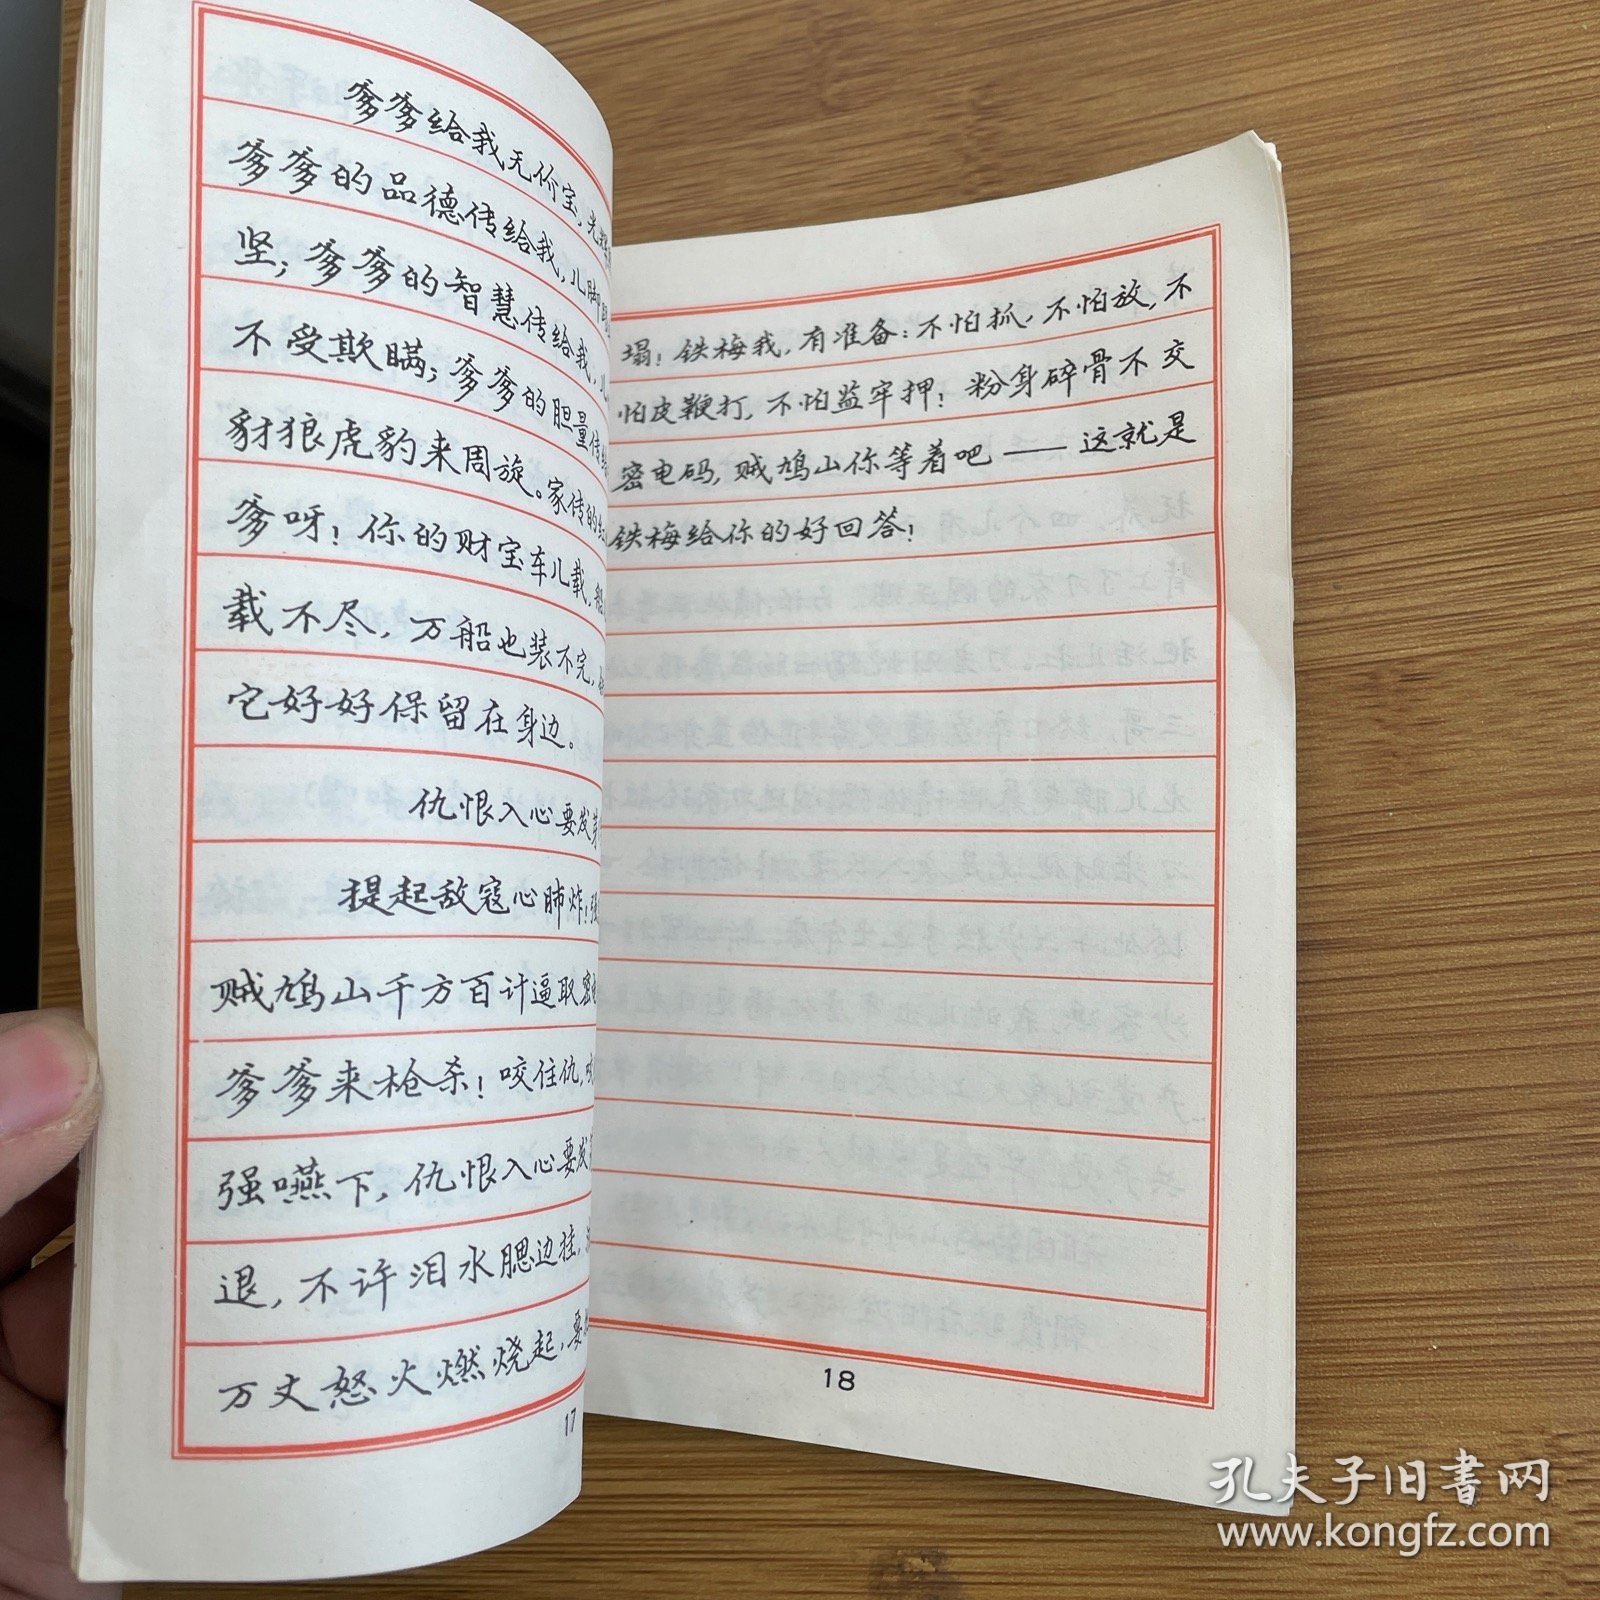 爹爹给我无价宝，光辉
爹爹的品德传给我，儿脚
坚；爹爹的智慧传给我，儿
不受欺瞒；爹爹的胆量传
豺狼虎豹来周旋。家传的
爹呀！你的财宝车儿载，船
载不尽，万船也装不完，
它好好保留在身边。
仇恨入心要发芽
提起敌寇心肺炸！强
贼鸠山千方百计逼取密
爹爹来枪杀！咬住仇，咬
强嚥下，仇恨入心要发
退，不许泪水腮边挂，
万丈怒火燃烧起，要
17
塌！铁梅我，有准备：不怕抓，不怕放，不
怕皮鞭打，不怕监牢押！粉身碎骨不交
密电码，贼鸠山你等着吧——这就是
铁梅给你的好回答！
18
孔夫子旧书网
www.kongfz.com